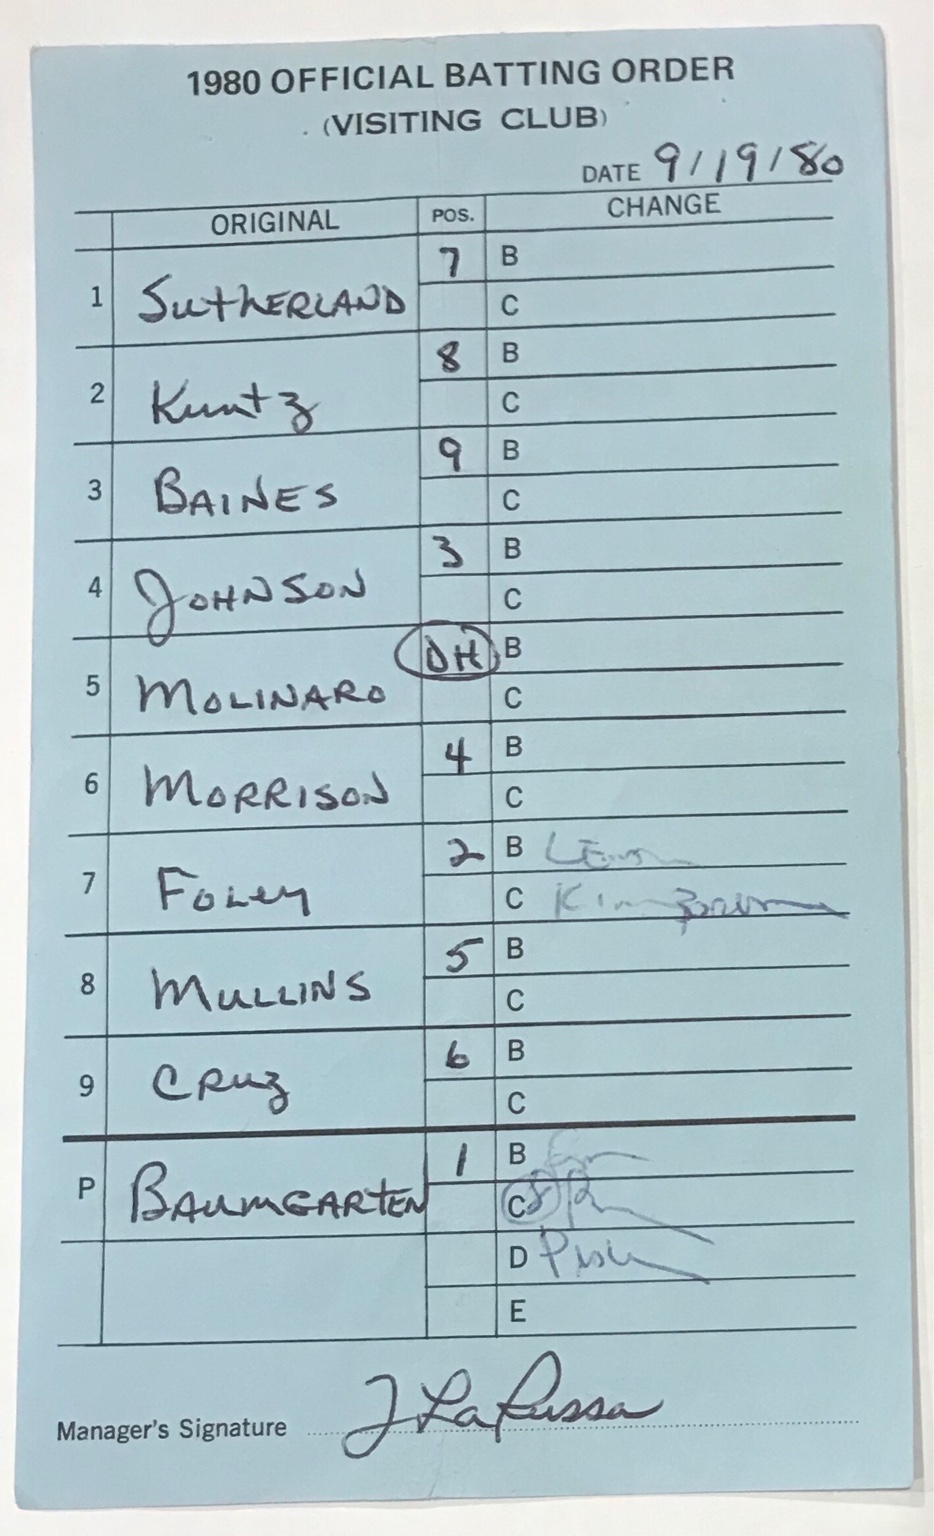 1980 OFFICIAL BATTING ORDER
(VISITING CLUB)
DATE 9/19/80
ORIGINAL POS. CHANGE
1 SUTHERLAND 7 B
C
2 Kuntz 8 B
C
3 BAINES 9 B
C
4 JOHNSON 3 B
C
5 MOLINARO DH B
C
6 MORRISON 4 B
C
7 FOLEY 2 B
C
8 MULLINS 5 B
C
9 CRUZ 6 B
C
P BAUMGARTEN 1 B
C
D
E
Manager's Signature J LaRussa